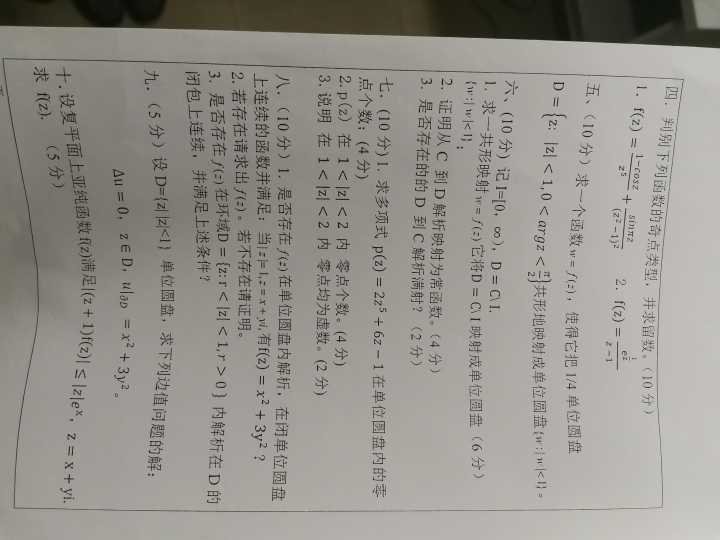 四．判别下列函数的奇点类型，并求留数。（10 分）
1．f(z) = \frac{1-cosz}{z^5} + \frac{sinπz}{(z^2-1)^2}　2．f(z) = \frac{e^{\frac{1}{z}}}{z-1}
五、（10 分）求一个函数 w = f(z)，使得它把 1/4 单位圆盘
D = {z: |z| < 1, 0 < argz < \frac{π}{2}} 共形地映射成单位圆盘 {w:| w |<1}。
六、（10 分）记 I=[0, ∞)，D = C\I.
1. 求一共形映射 w = f(z) 它将D = C\I 映射成单位圆盘（6 分）
{w:| w |<1}；
2．证明从 C 到 D 解析映射为常函数。（4 分）
3．是否存在的的 D 到 C 解析满射？（2 分）
七．(10 分) 1．求多项式 p(z) = 2z^5 + 6z − 1 在单位圆盘内的零
点个数；(4 分)
2. p(z) 在 1 < |z| < 2 内 零点个数。(4 分)
3. 说明 在 1 < |z| < 2 内 零点均为虚数。(2 分)
八．（10 分）1. 是否存在 f(z) 在单位圆盘内解析，在闭单位圆盘
上连续的函数并满足：当| z |= 1, z = x + yi, 有f(z) = x^2 + 3y^2？
2. 若存在请求出 f(z)。若不存在请证明。
3. 是否存在 f(z) 在环域D = {z: r < |z| < 1, r > 0 } 内解析在 D 的
闭包上连续，并满足上述条件？
九．（5 分）设 D={z| |z|<1} 单位圆盘，求下列边值问题的解：
Δu = 0，z ∈ D，u|_{∂D} = x^2 + 3y^2。
十．设复平面上亚纯函数 f(z)满足|(z + 1)f(z)| ≤ |z|e^x，z = x + yi.
求 f(z).（5 分）